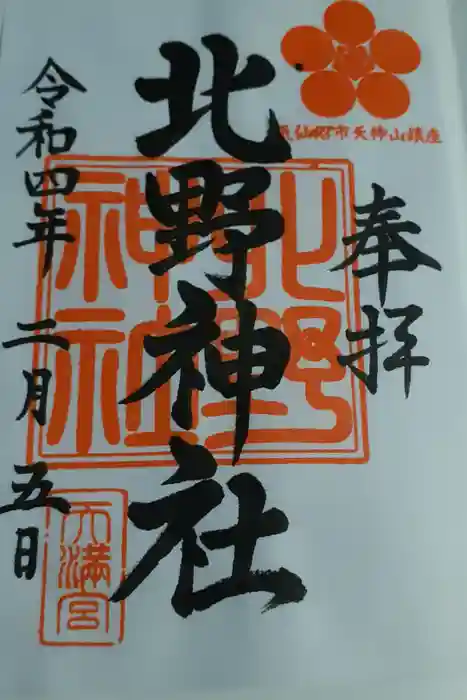 奉拝
北野神社
令和四年二月五日
気仙沼市天神山鎮座
北野神社
天満宮